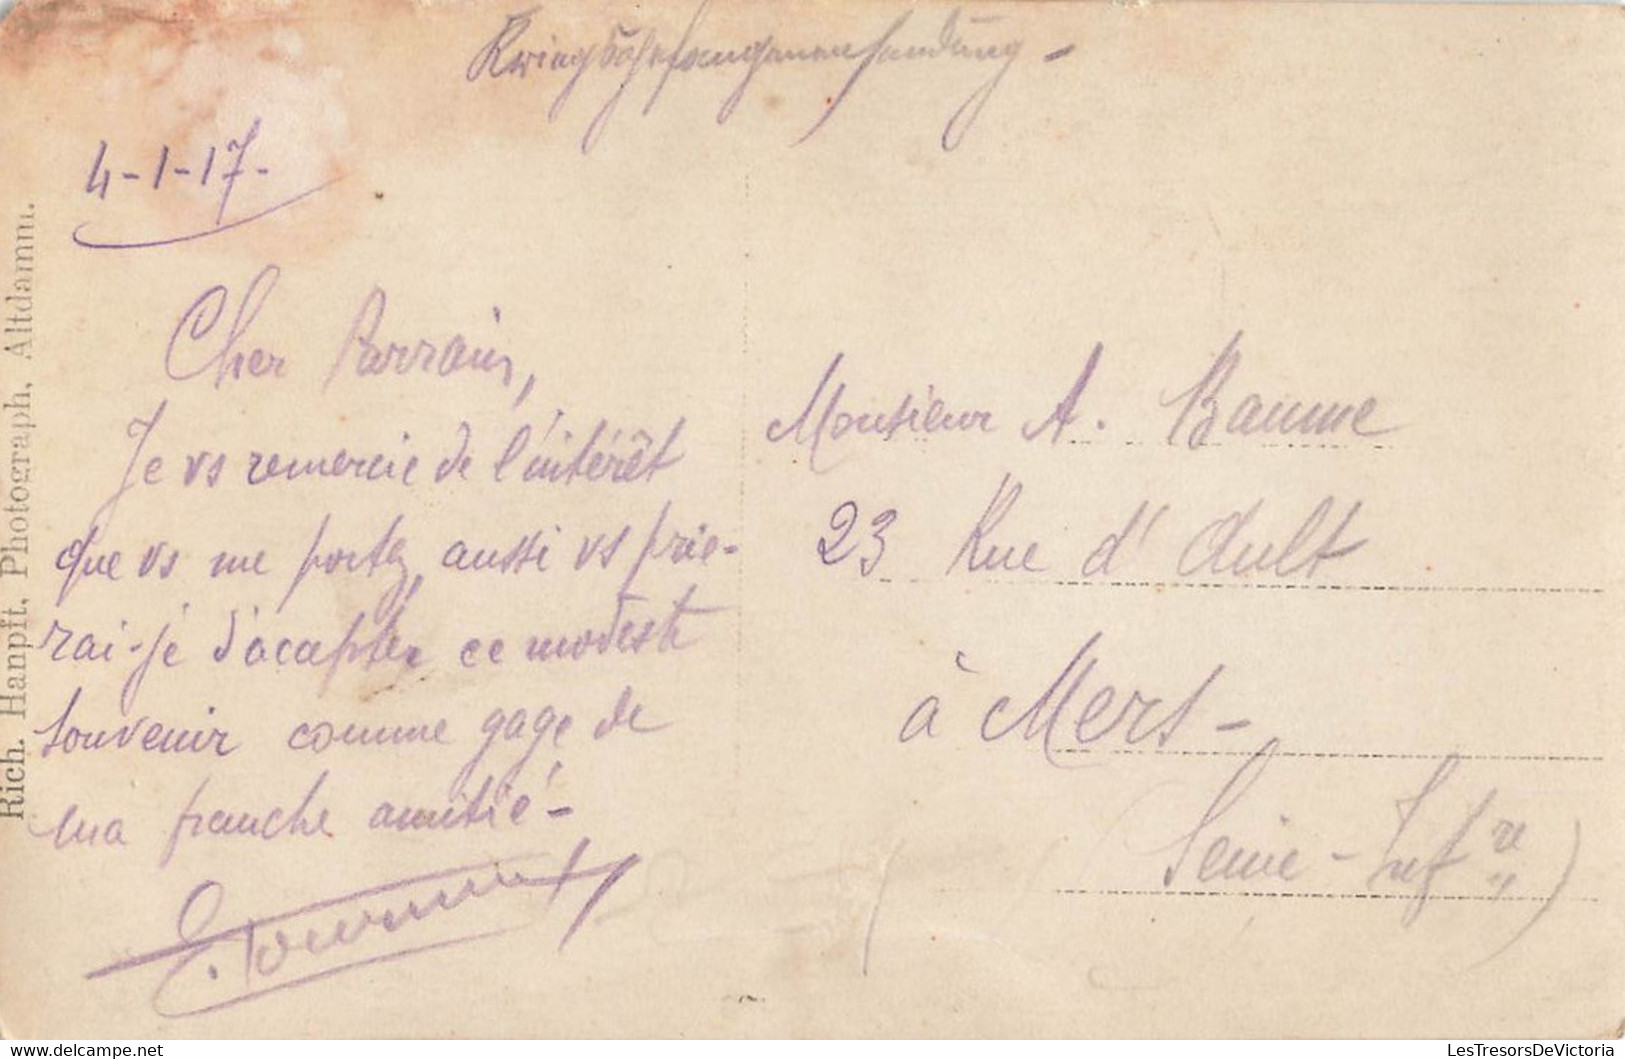 Kriegsgefangenensendung -
4-1-17-
Cher Parrain,
Je vs remercie de l'intérêt
que vs me portez, aussi vs prie-
rai-je d'accepter ce modeste
souvenir comme gage de
ma franche amitié -
Monsieur A. Baume
23 Rue d'Ault
à Mers -
Seine - Infre)
Rich. Hanpft, Photograph, Altdamm.
LesTresorsDeVictoria